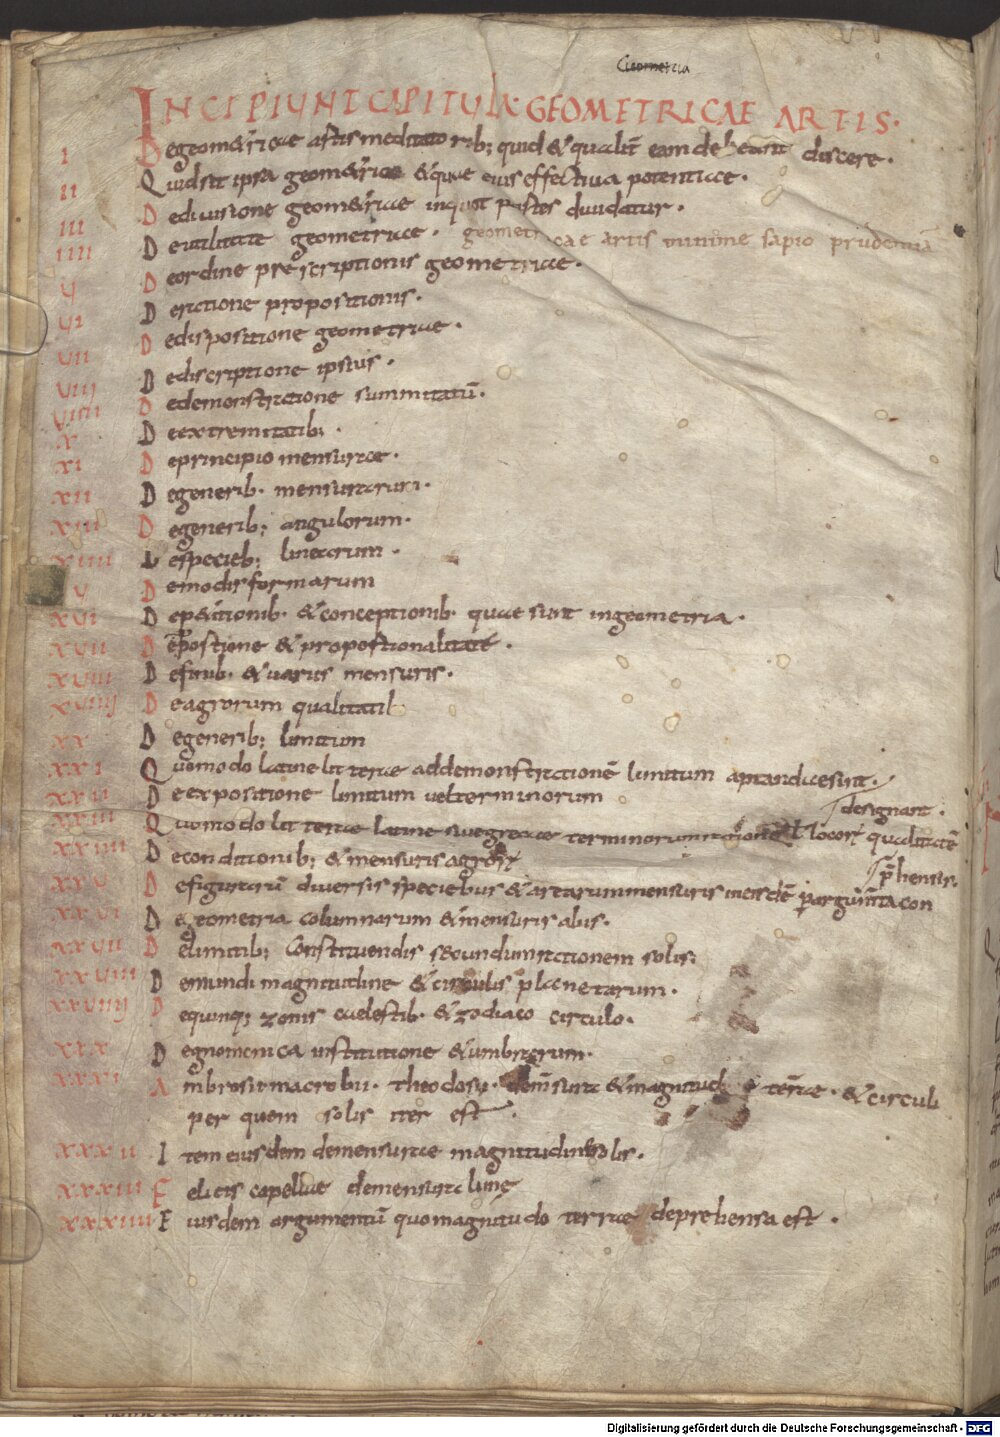 Geometria
INCIPIUNT CAPITULA GEOMETRICAE ARTIS.
I De geom&ricae artis meditatorib; quid & qualit̄ eam debeant discere.
II Quid sit ipsa geom&rica & quae eius effectiua potentiae.
III De diuisione geom&ricae in quot partes diuidatur.
IIII De utilitate geometricae. geometricae artis minime sapio prudentia
V De ordine prescriptionis geometricae.
VI De ratione propositionis.
VII De dispositione geometricae.
VIII De discriptione ipsius.
VIIII De demonstratione summitatū.
X De extremitatib;.
XI De principio mensurae.
XII De generib. mensurarum.
XIII De generib; angulorum.
XIIII De specieb; linearum.
V De modis formarum
XVI De p&itionib. & conceptionib. quae sunt in geometria.
XVII De portione & proportionalitate.
XVIII De finib. & uariis mensuris.
XVIIII De agrorum qualitatib
XX De generib; limitum
XXI Quomodo latine litterae ad demonstrationē limitum aptandae sint.
XXII De expositione limitum uel terminorum
designant.
XXIII Quomodo litterae latine siue grecae terminorum rationē t locorꝝ qualitatē
XXIIII De conditionib; & mensuris agrorꝝ
p̄hensis.
XXV De figurarū diuersis speciebus & arearum mensuris incon
XXVI De geometria columnarum & mensuris aliis.
XXVII De limitib; constituendis secundum rationem solis.
XXVIII De mundi magnitudine & circulis planetarum.
XXVIIII De quinq; zonis caelestib. & zodiaco circulo.
XXX De gnomonica institutione & umbrarum.
XXXI Ambrosii macrobii. theodosii. demensura & magnitud e terrae. & circuli
per quem solis iter est.
XXXII Item eiusdem demensurae magnitudine solis.
XXXIII Felicis capellae demensura lunę
XXXIIII Eiusdem argumentū quo magnitudo terrae deprehensa est.
Digitalisierung gefördert durch die Deutsche Forschungsgemeinschaft - DFG